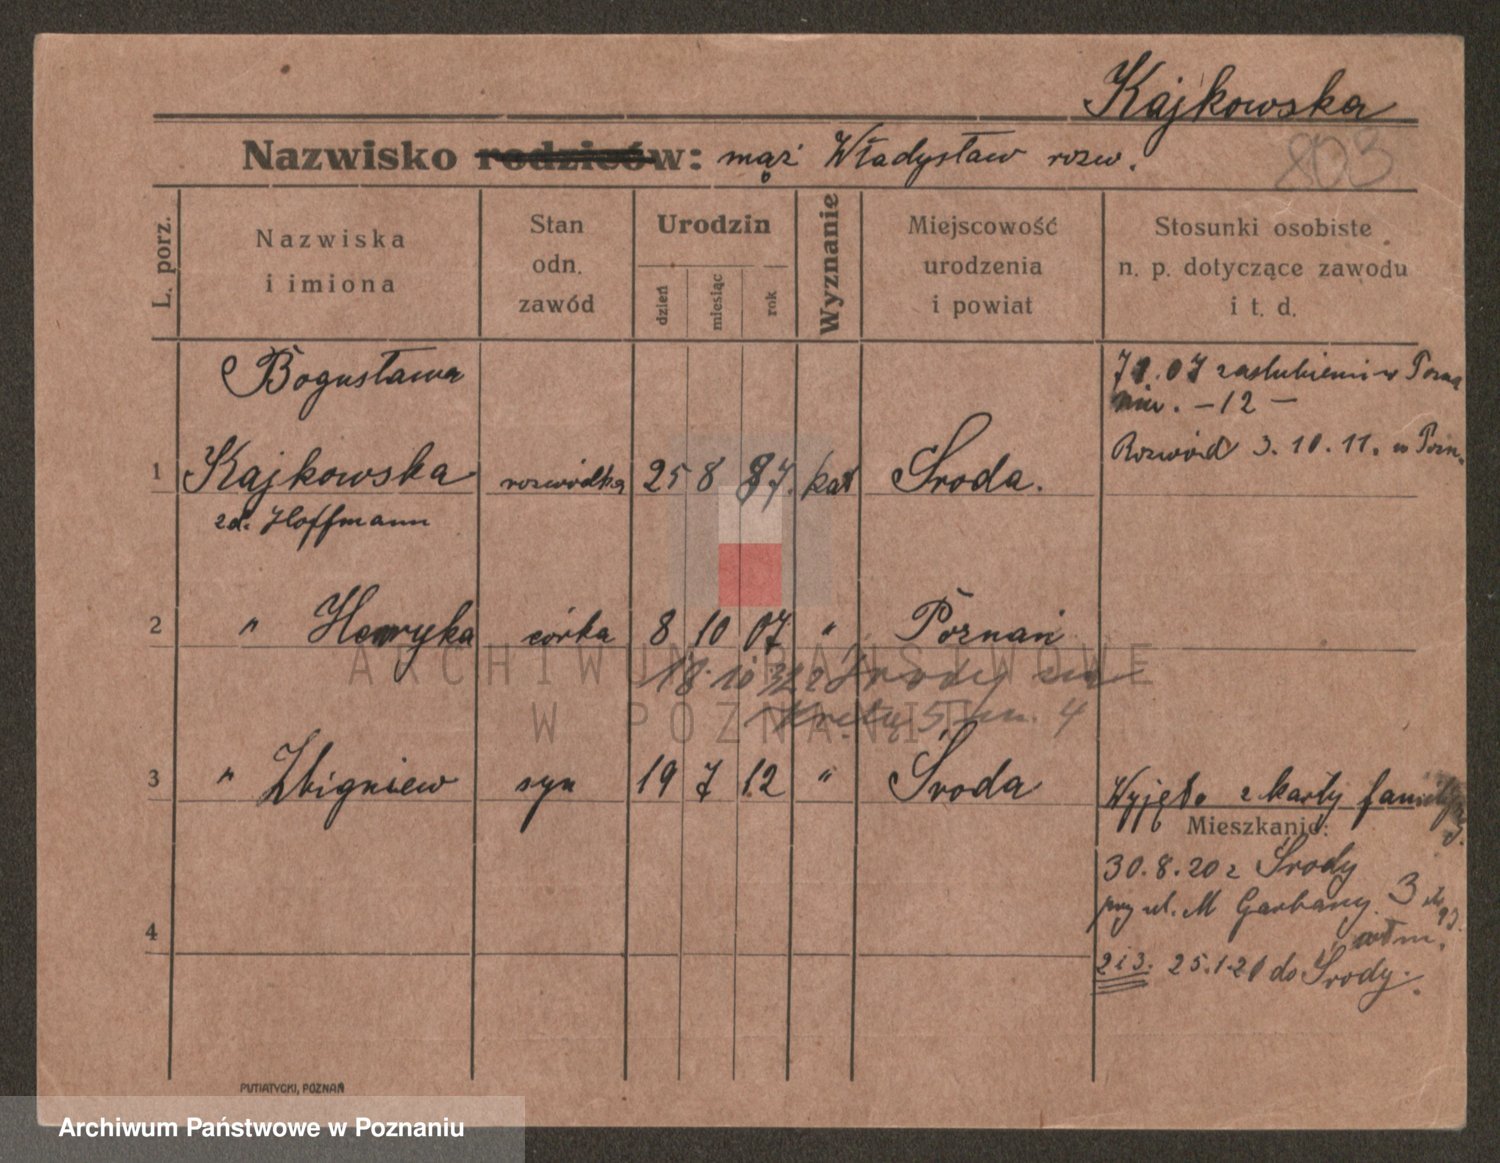 Kajkowska
803
Nazwisko rodziców: mąż Władysław rozw.
L. porz.
Nazwiska i imiona
Stan odn. zawód
Urodzin
dzień
miesiąc
rok
Wyznanie
Miejscowość urodzenia i powiat
Stosunki osobiste n. p. dotyczące zawodu i t. d.
Bogusława
1 Kajkowska rozwódka 25 8 87. kat Środa.
zd. Hoffmann
07 zaślubieni w Pozna
niu. – 12 –
Rozwód 3.10.11. w Pozn.
2 " Henryka córka 8 10 07 " Poznań
18.10 32 z Środy
5 m. 4
3 " Zbigniew syn 19 7 12 " Środa
Wyjęto z karty
Mieszkanie:
30.8.20 z Środy
przy ul. M Garbary 3
4
2 i 3. 25.1.21 do Środy.
PUTIATYCKI, POZNAŃ
ARCHIWUM PAŃSTWOWE
W POZNANIU
Archiwum Państwowe w Poznaniu